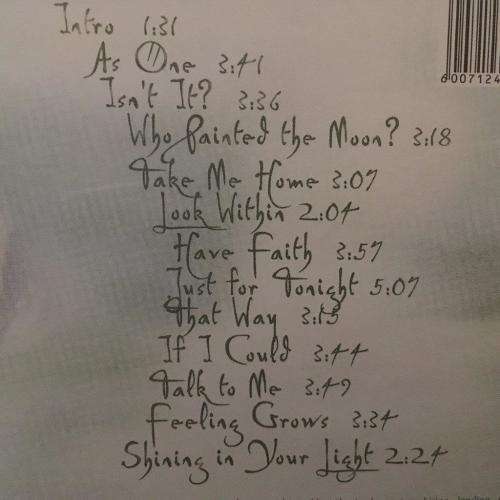 Intro 1:31
As One 3:41
Isn't It? 3:36
Who Painted the Moon? 3:18
Take Me Home 3:07
Look Within 2:04
Have Faith 3:57
Just for Tonight 5:07
That Way 3:15
If I Could 3:44
Talk to Me 3:49
Feeling Grows 3:34
Shining in Your Light 2:24
6007124